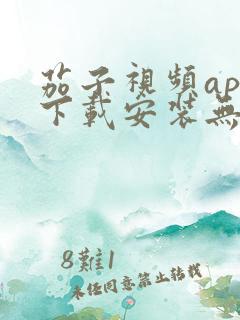 茄子視頻ap
下載安裝無
8難1
未经同意禁止转载